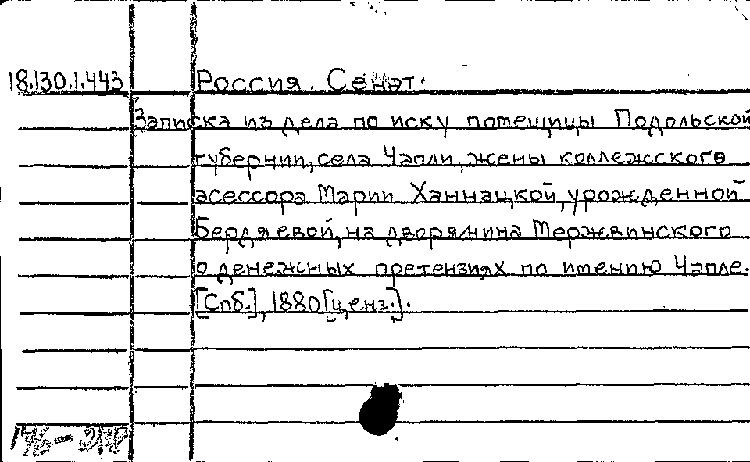 18.130.1.443 Россия. Сенат.
Записка из дела по иску помещицы Подольской
губернии, села Чапли, жены коллежского
асессора Марии Ханнацкой, урожденной
Бердяевой, на дворянина Мержвинского
о денежных претензиях по имению Чапле.
[Спб.], 1880 [ценз.].